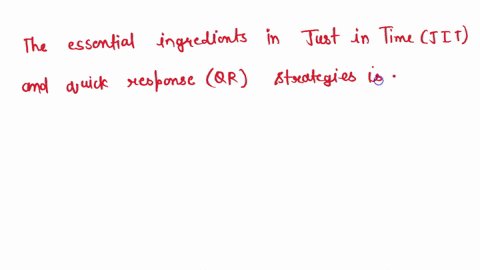 The essential ingredients in Just in Time (JIT)
and quick response (QR) strategies is.